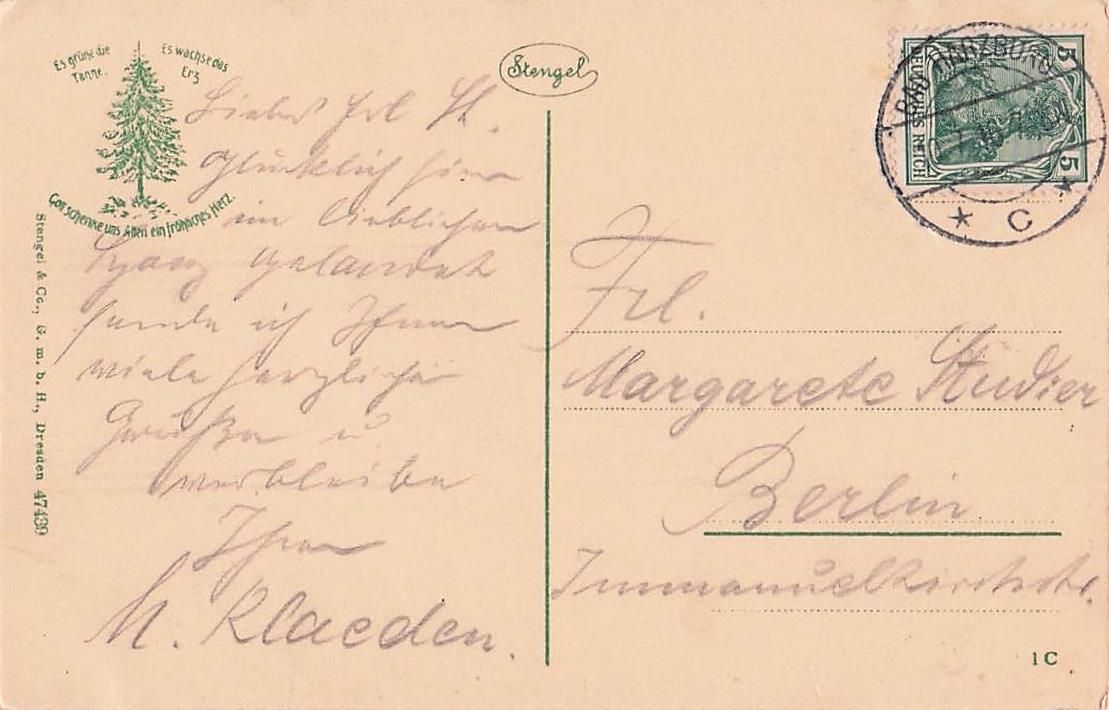 Es grüne die
Tanne.
Es wachse das
Erz
Gott schenke uns Allen ein fröhliches Herz.
Stengel
Stengel & Co., G. m. b. H., Dresden 47439
Liebes Frl. St.
Glücklich hier
im lieblichen
Harz gelandet
sende ich Ihnen
viele herzliche
Grüße u.
verbleibe
Ihre
M. Klaeden.
BAD HARZBURG
* C *
DEUTSCHES REICH
5
5
Frl.
Margarete Studier
Berlin
Immanuelkirchstr.
1 C